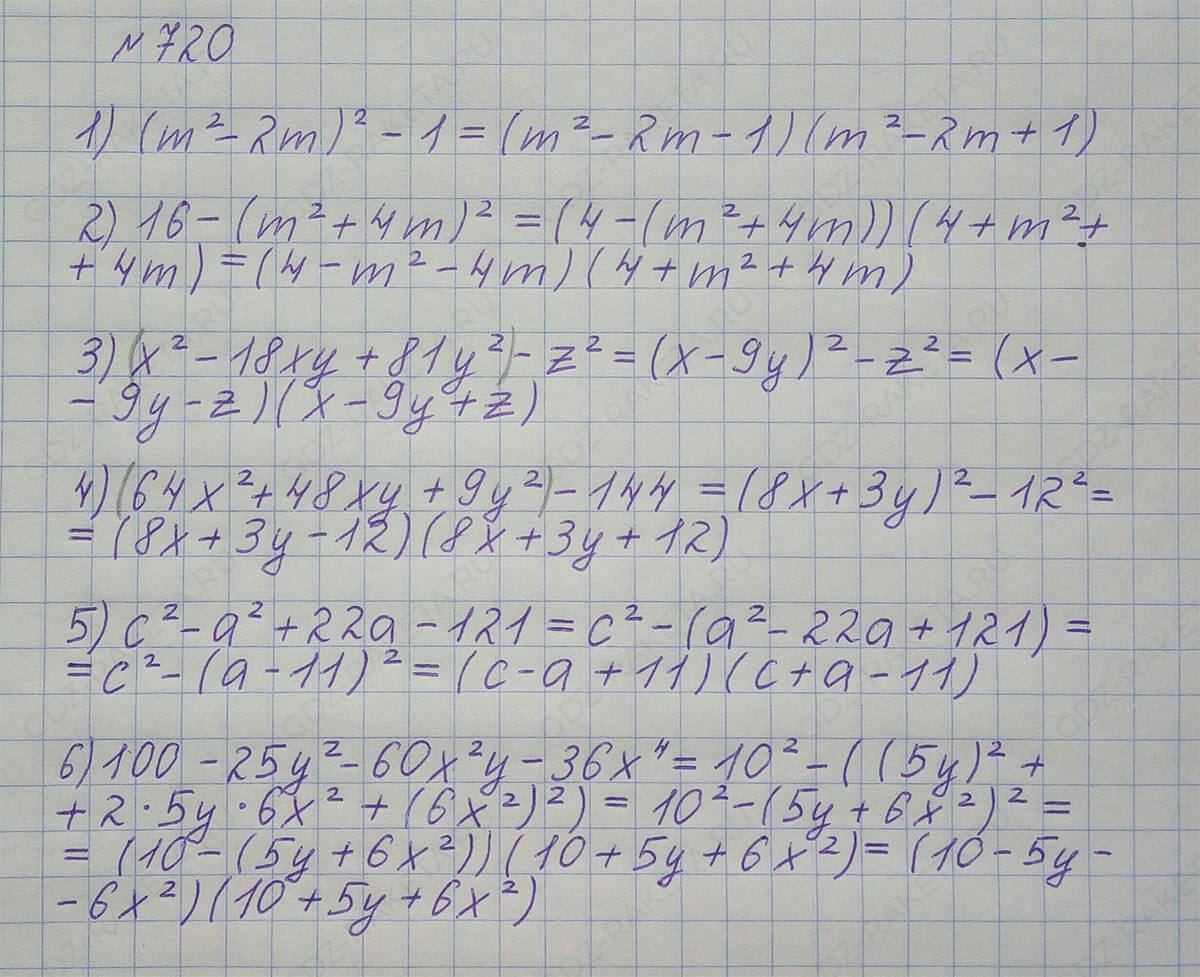 №720
1) (m² - 2m)² - 1 = (m² - 2m - 1)(m² - 2m + 1)
2) 16 - (m² + 4m)² = (4 - (m² + 4m))(4 + m² +
+ 4m) = (4 - m² - 4m)(4 + m² + 4m)
3) (x² - 18xy + 81y²) - z² = (x - 9y)² - z² = (x -
- 9y - z)(x - 9y + z)
4) (64x² + 48xy + 9y²) - 144 = (8x + 3y)² - 12² =
= (8x + 3y - 12)(8x + 3y + 12)
5) c² - a² + 22a - 121 = c² - (a² - 22a + 121) =
= c² - (a - 11)² = (c - a + 11)(c + a - 11)
6) 100 - 25y² - 60x²y - 36x⁴ = 10² - ((5y)² +
+ 2 · 5y · 6x² + (6x²)²) = 10² - (5y + 6x²)² =
= (10 - (5y + 6x²))(10 + 5y + 6x²) = (10 - 5y -
- 6x²)(10 + 5y + 6x²)
GDZ-RAKETA.RU